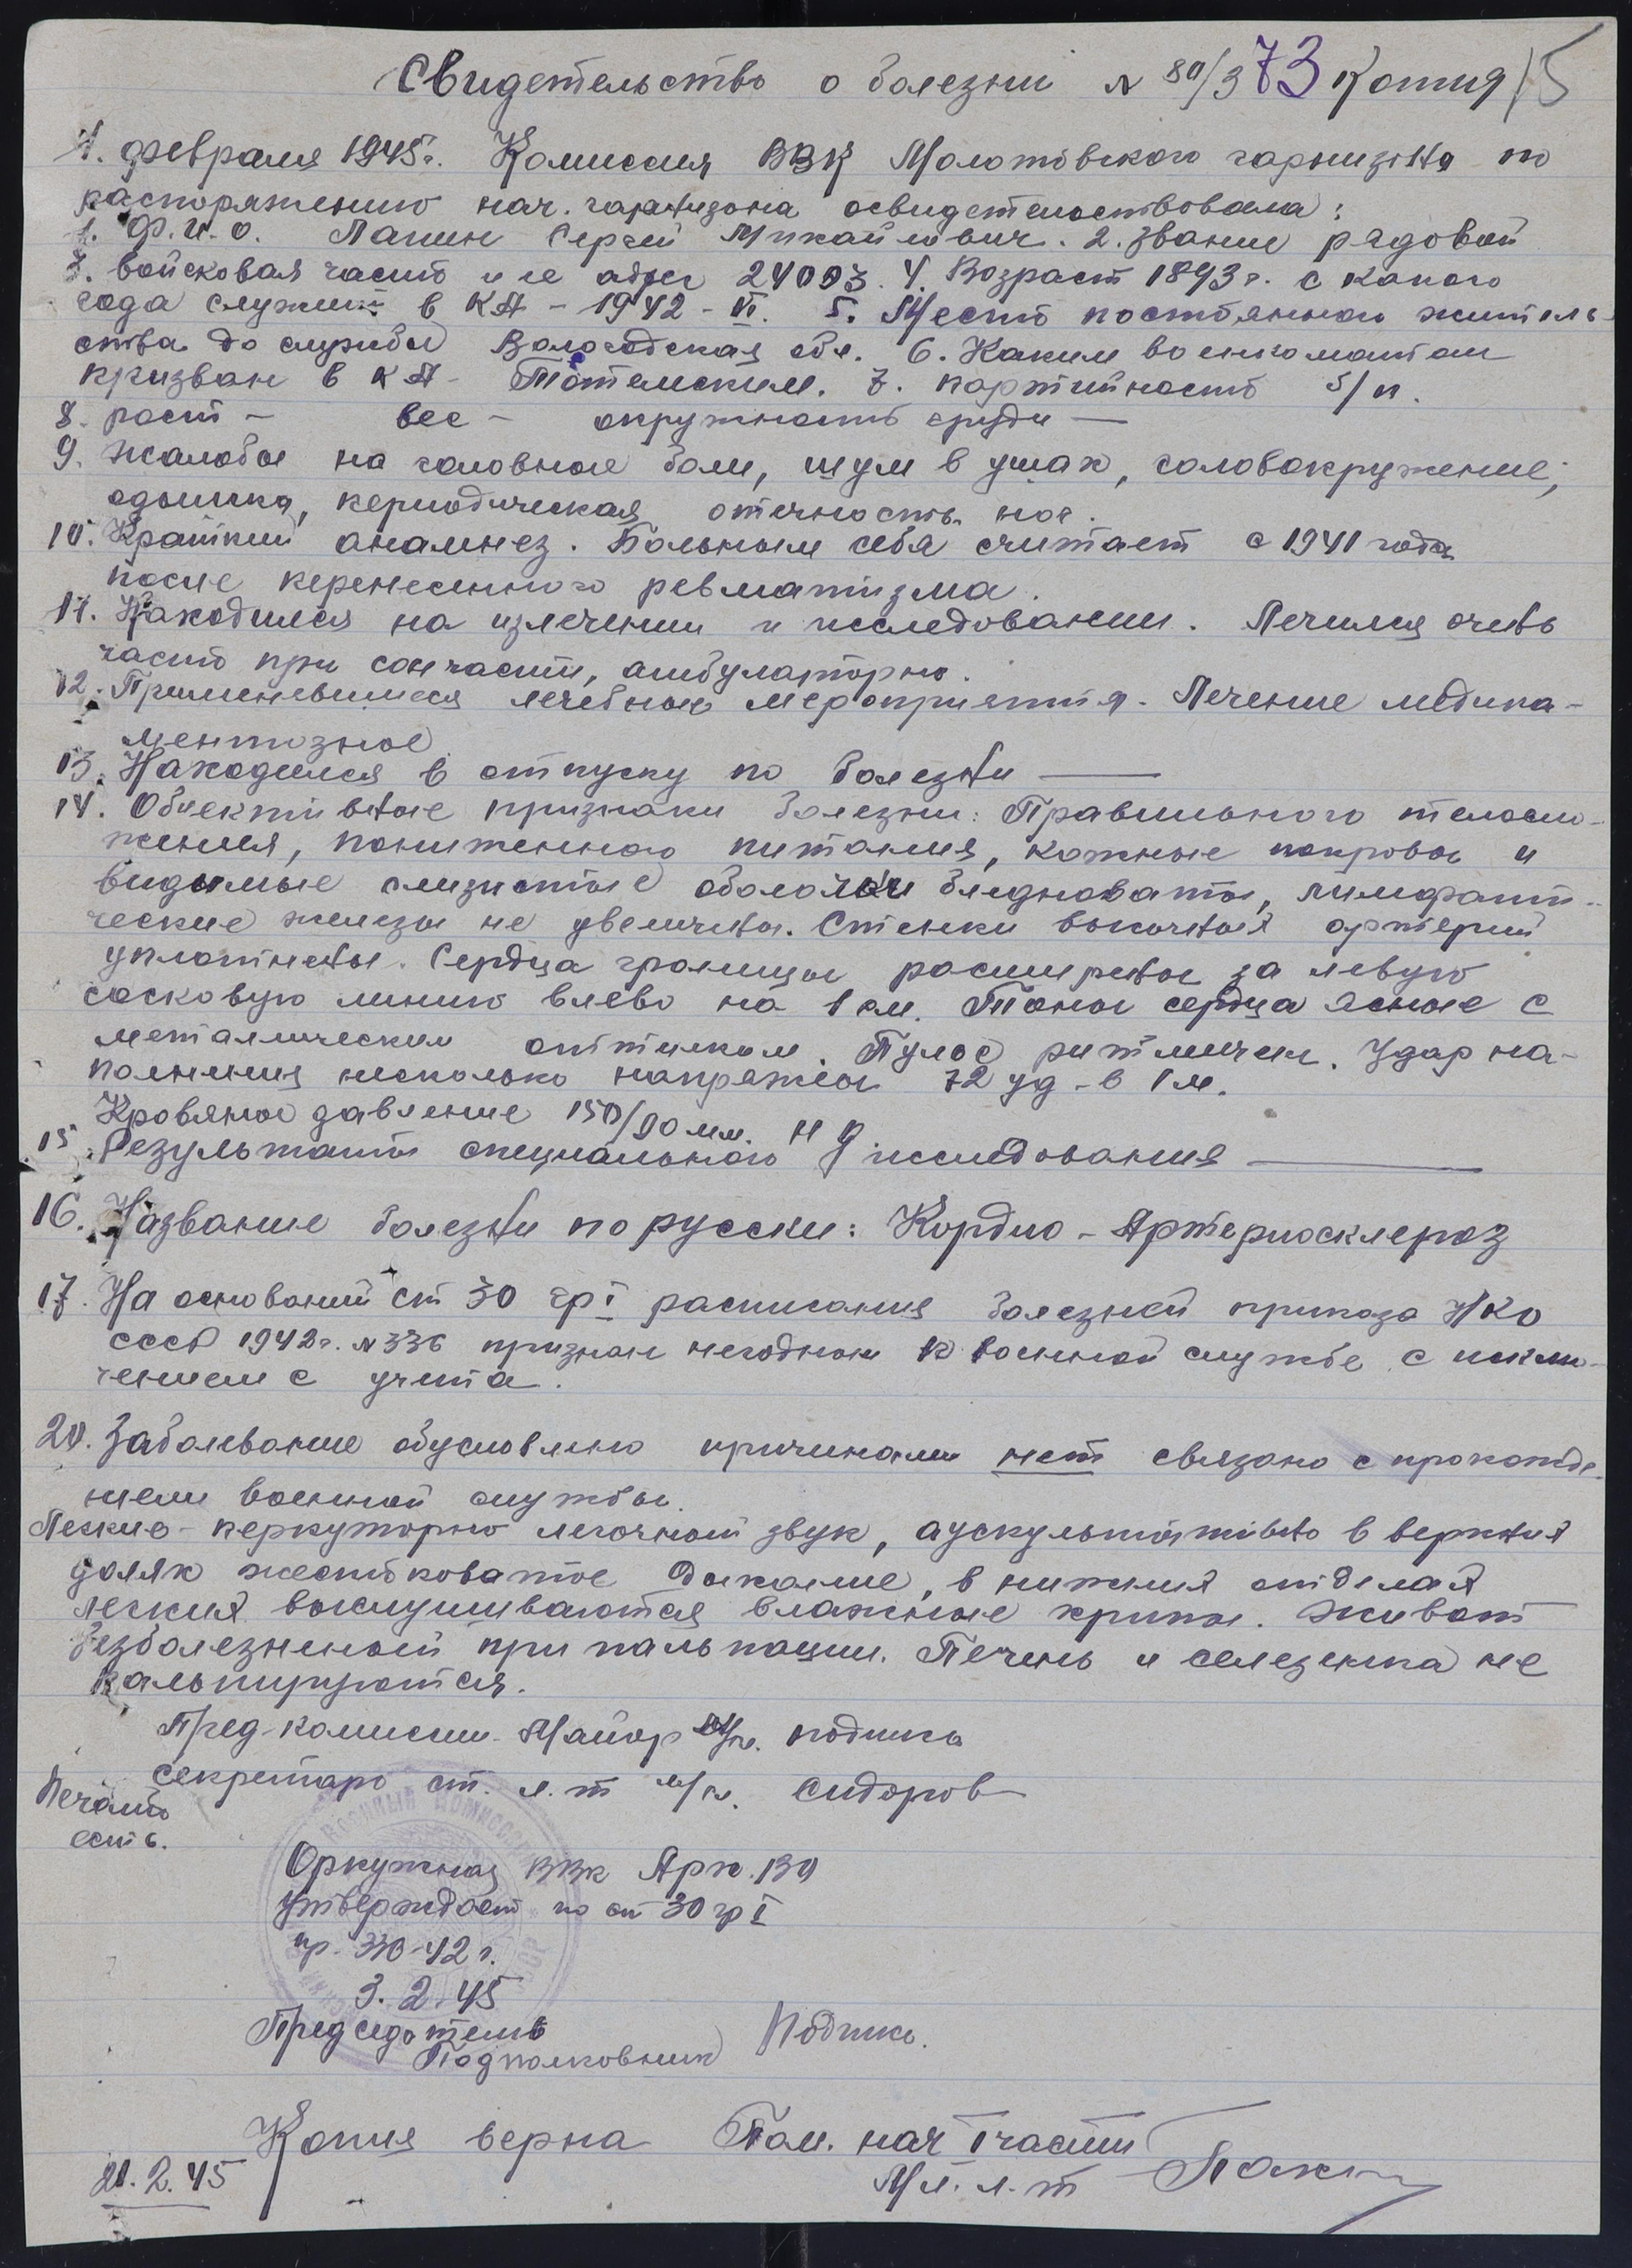 Свидетельство о болезни № 80/373 Копия 15
1. февраля 1945г. Комиссия ВВК Молотовского гарнизона по
распоряжению нач. гарнизона освидетельствовала:
1. Ф.И.О. Лапин Сергей Михайлович. 2. Звание рядовой
3. Войсковая часть и ее адрес 24003. 4. Возраст 1893г. с какого
года служит в КА - 1942 - VI. 5. Место постоянного житель-
ства до службы Вологодская обл. 6. Каким военкоматом
призван в КА - Тотемским. 7. партийность б/п.
8. рост - вес - окружность груди —
9. Жалобы на головные боли, шум в ушах, головокружение,
одышка, периодическая отечность ног.
10. Краткий анамнез. Больным себя считает с 1941 года
после перенесенного ревматизма.
11. Находился на излечении и исследовании. Лечился очень
часто при санчасти, амбулаторно.
12. Применявшиеся лечебные мероприятия. Лечение медика-
ментозное
13. Находился в отпуску по болезни —
14. Объективные признаки болезни: Правильного телосло-
жения, пониженного питания, кожные покровы и
видимые слизистые оболочки бледноваты, лимфати-
ческие железы не увеличены. Стенки височных артерий
уплотнены. Сердца границы расширены за левую
сосковую линию влево на 1 см. Тоны сердца ясные с
металлическим оттенком. Пульс ритмичен. Удар на-
полнения несколько напряжен 72 уд - в 1 м.
Кровяное давление 150/90 мм. Hg
15. Результаты специального исследования —
16. Название болезни по русски: Кордио - Артериосклероз
17. На основании ст 30 гр I расписания болезней приказа НКО
СССР 1942г. №336 признан негодным к военной службе с исклю-
чением с учета.
20. Заболевание обусловлено причинами нет связано с прохожде-
нием военной службы.
Легкие - перкуторно легочный звук, аускультативно в верхних
долях жестковатое дыхание, в нижних отделах
легких выслушиваются влажные хрипы. Живот
безболезненный при пальпации. Печень и селезенка не
пальпируются.
Пред. комиссии Майор м/сл. подпись
секретарь ст. л-т м/сл. Сидоров
Печать
есть.
Оркужная ВВК Арх. ВО
Утверждает по ст 30 гр I
пр. 336-42 г.
3. 2. 45
Председатель
Подполковник Подпись.
Копия верна Пом. нач 1 части
Мл. л-т
21. 2. 45